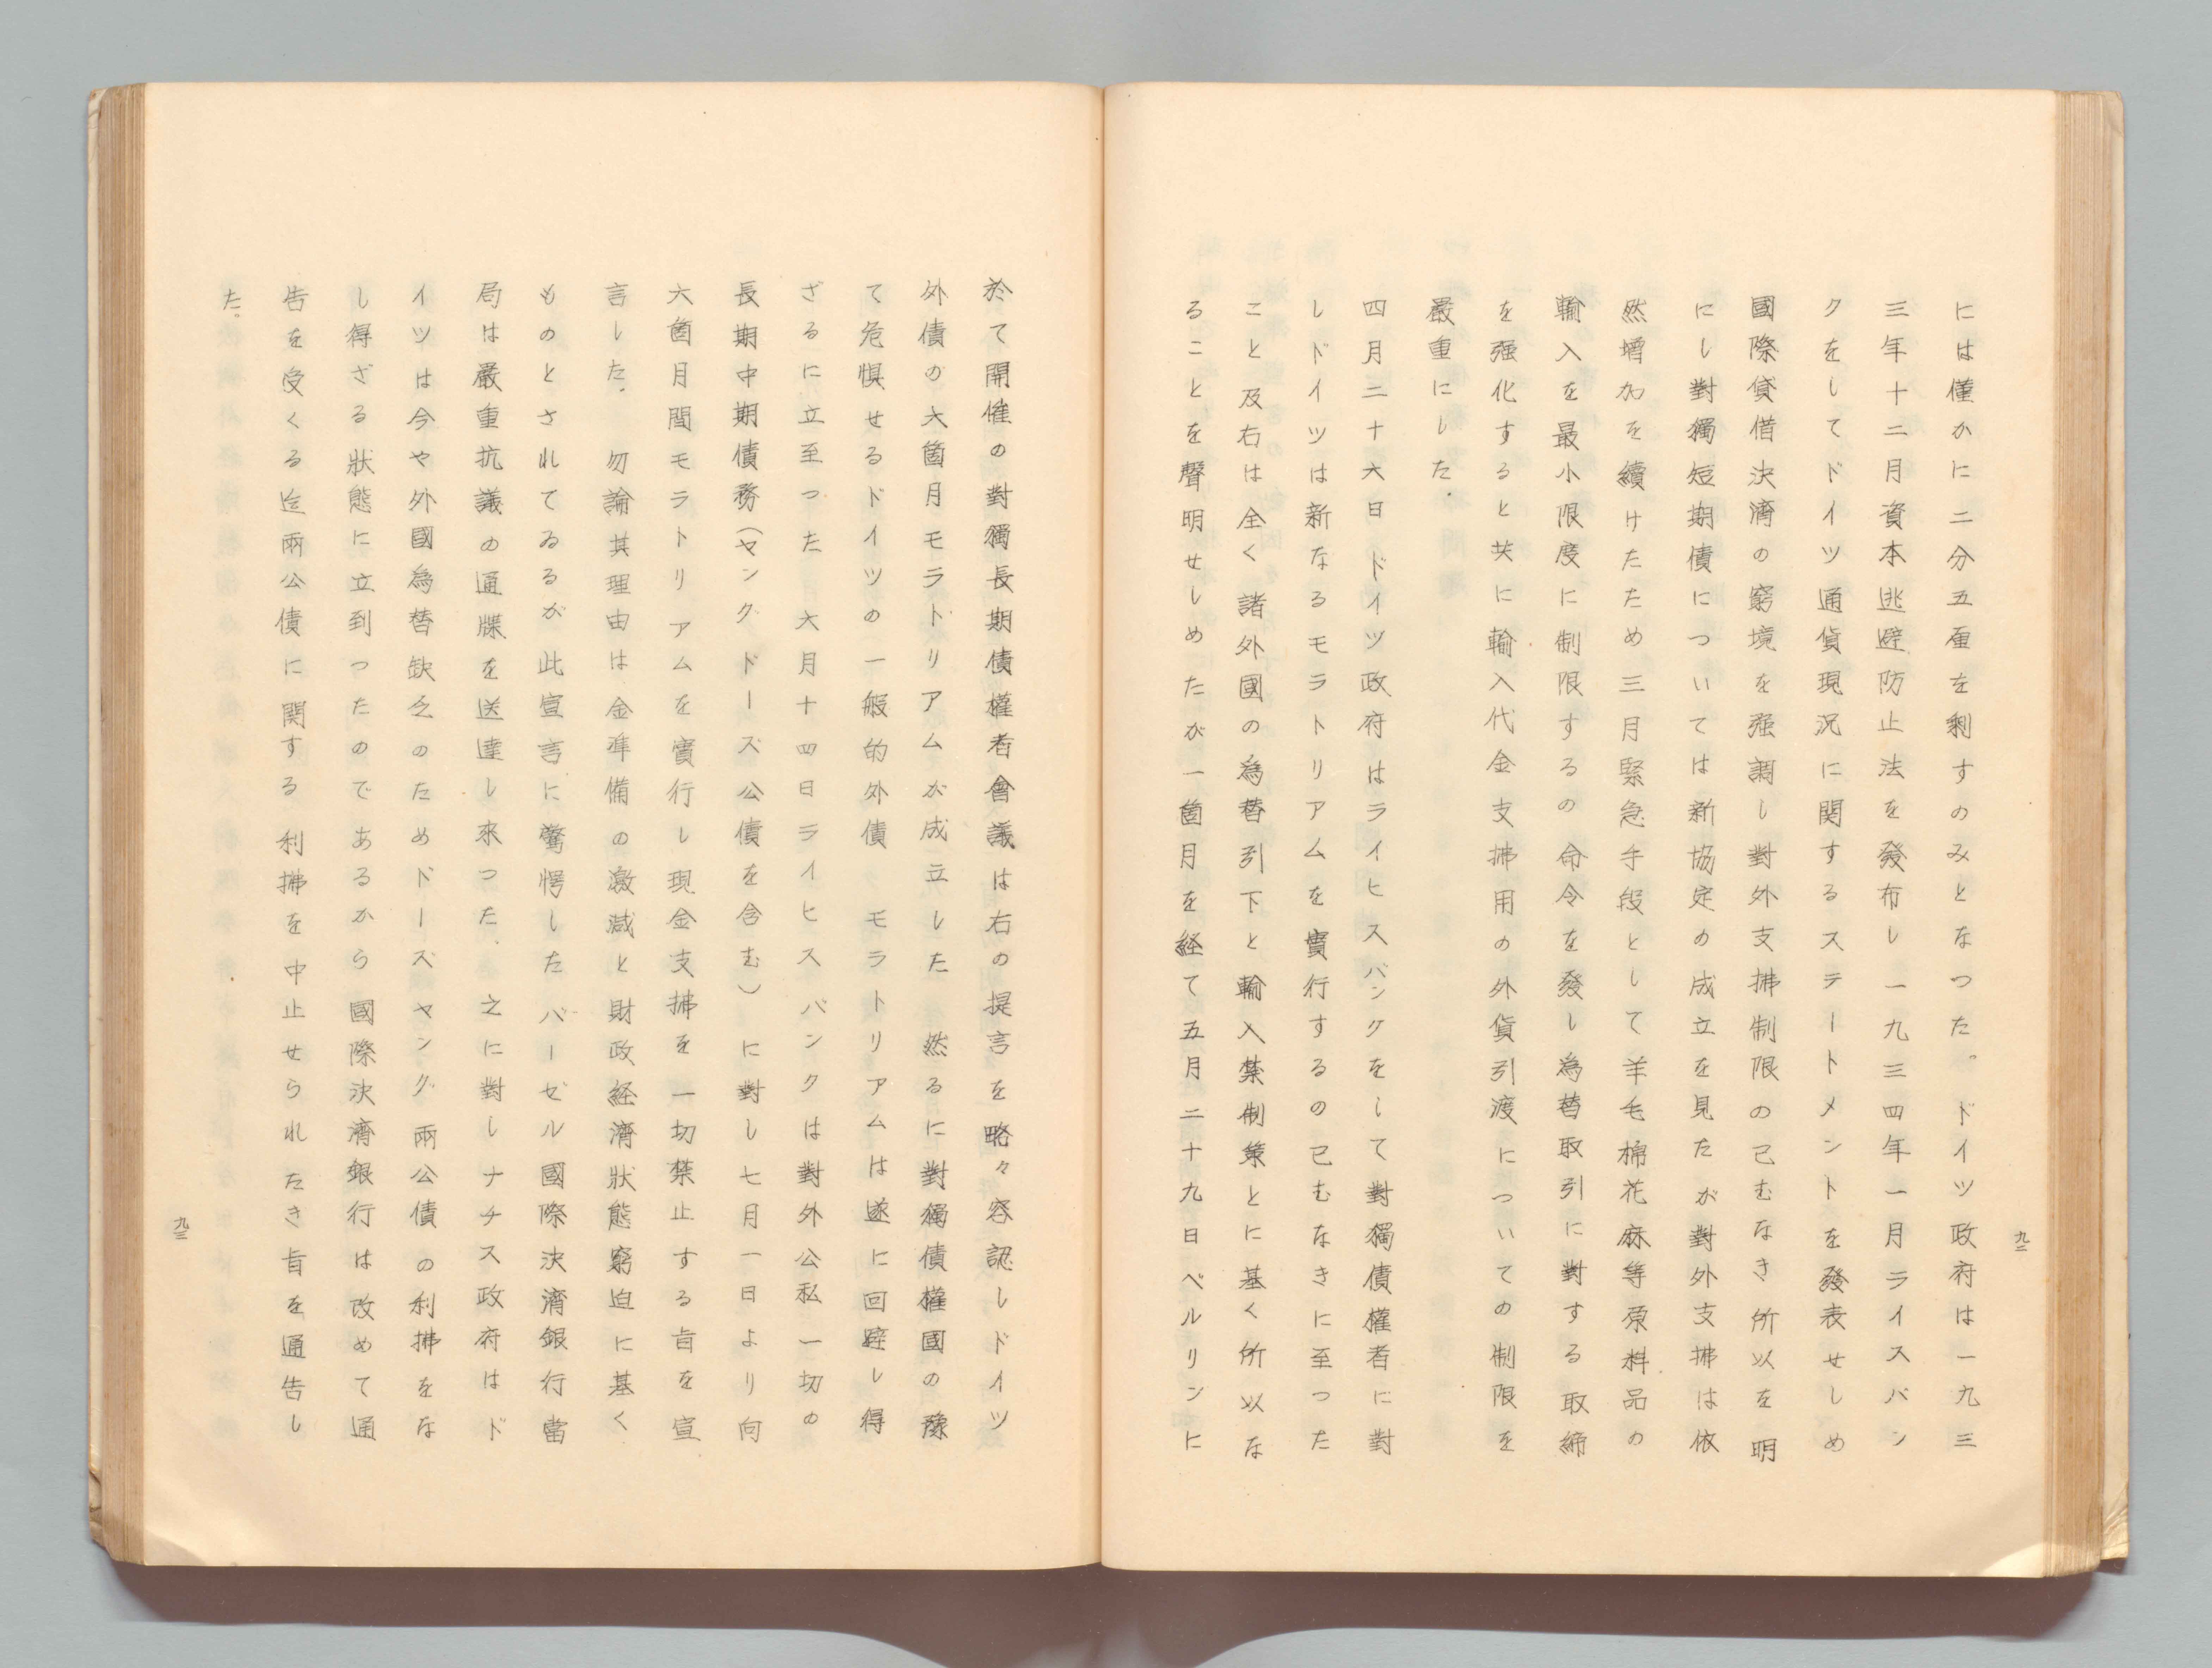 には僅かに二分五厘を剰すのみとなつた。ドイツ政府は一九三
三年十二月資本逃避防止法を發布し一九三四年一月ライスバン
クをしてドイツ通貨現況に関するステートメントを發表せしめ
國際貸借決濟の窮境を强調し對外支拂制限の已むなき所以を明
にし對獨短期債については新協定の成立を見たが對外支拂は依
然増加を續けたため三月緊急手段として羊毛棉花麻等原料品の
輸入を最小限度に制限するの命令を發し為替取引に對する取締
を强化すると共に輸入代金支拂用の外貨引渡についての制限を
嚴重にした。
四月二十六日ドイツ政府はライヒスバンクをして對獨債權者に對
しドイツは新なるモラトリアムを實行するの已むなきに至つた
こと及右は全く諸外國の為替引下と輸入禁制策とに基く所以な
ることを聲明せしめたが一箇月を経て五月二十九日ベルリンに
九二
於て開催の對獨長期債權者會議は右の提言を略々容認しドイツ
外債の六箇月モラトリアムが成立した 然るに對獨債權國の豫
て危惧せるドイツの一般的外債 モラトリアムは遂に回避し得
ざるに立至つた 六月十四日ライヒスバンクは對外公私一切の
長期中期債務(ヤングドーズ公債を含む)に對し七月一日より向
六箇月間モラトリアムを實行し現金支拂を一切禁止する旨を宣
言した。 勿論其理由は金準備の激減と財政経濟狀態窮迫に基く
ものとされてゐるが此宣言に驚愕したバーゼル國際決濟銀行當
局は嚴重抗議の通牒を送達し來つた、之に對しナチス政府はド
イツは今や外國為替缺乏のためドーズヤング兩公債の利拂をな
し得ざる狀態に立到つたのであるから國際決濟銀行は改めて通
告を受くる迄兩公債に関する利拂を中止せられたき旨を通告し
た。
九三